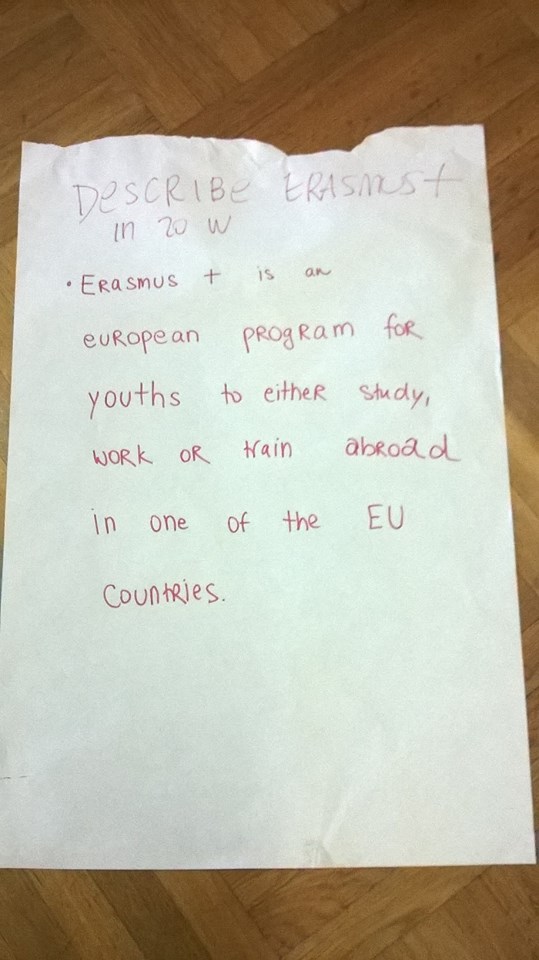 DESCRIBE ERASMUS+
in 20 W
• ERasmus + is an
euRopean pROgRam foR
youths to eitheR study,
WORK OR train abROad
in one of the EU
CountRies.